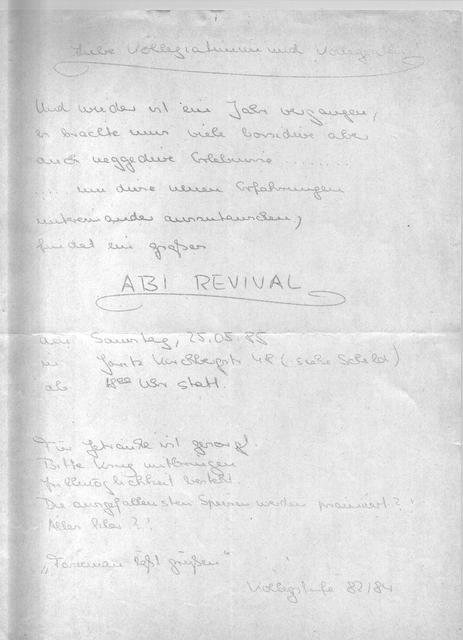 Liebe Kollegiatinnen und Kollegiaten!
Und wieder ist ein Jahr vergangen,
es brachte uns viele possitive aber
auch neggative Erlebnisse .........
.... um diese neuen Erfahrungen
miteinander auszutauschen,
findet ein großes
ABI REVIVAL
am Samstag, 25.05.85
in 48 (siehe Schild)
ab 18⁰⁰ Uhr statt.
Für Getränke ist gesorgt.
Bitte mitbringen
Grillmöglichkeit besteht.
Die ausgefallensten Speisen werden prämiert?!
Alles klar?!
„ läßt grüßen"
Kollegstufe 82/84